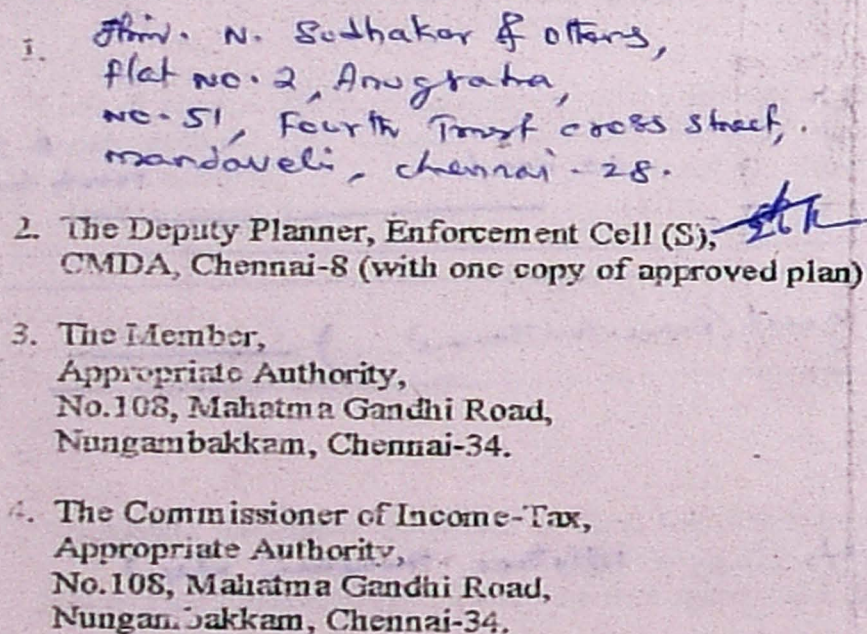 1. Thiru. N. Sudhakar & others,
flat No. 2, Anugraha,
No. 51, Fourth Trust cross street,.
mandaveli, chennai - 28.
2. The Deputy Planner, Enforcement Cell (S),
CMDA, Chennai-8 (with one copy of approved plan)
3. The Member,
Appropriate Authority,
No.108, Mahatma Gandhi Road,
Nungambakkam, Chennai-34.
4. The Commissioner of Income-Tax,
Appropriate Authority,
No.108, Mahatma Gandhi Road,
Nungambakkam, Chennai-34.